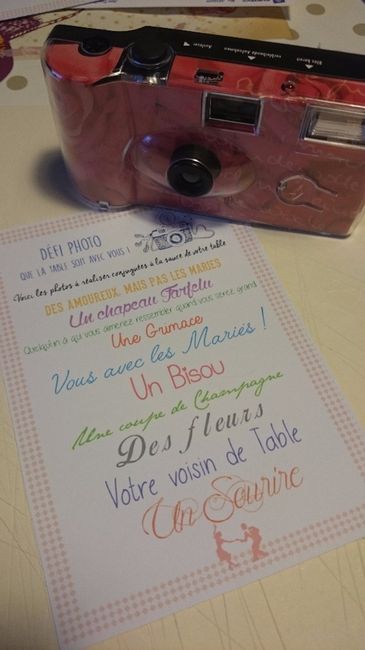 Auslöser
verbleibende Aufnahmen
Blitz bereit
DÉFI PHOTO
QUE LA TABLE SOIT AVEC VOUS !
Voici les photos à réaliser conjuguées à la sauce de votre table
DES AMOUREUX, MAIS PAS LES MARIES
Un chapeau Farfelu
Quelqu'un à qui vous aimeriez ressembler quand vous serez grand
Une Grimace
Vous avec les Mariés !
Un Bisou
Une coupe de Champagne
Des fleurs
Votre voisin de Table
Un Sourire